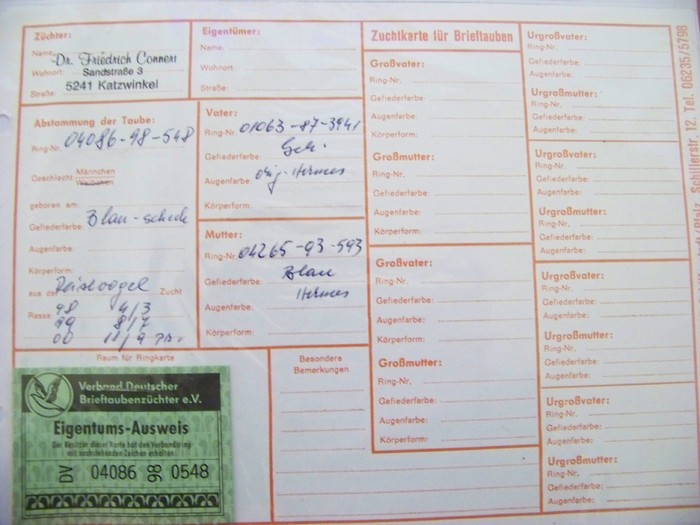 Züchter:
Name:
Dr. Friedrich Connert
Wohnort: Sandstraße 3
Straße: 5241 Katzwinkel
Eigentümer:
Name:
Wohnort:
Straße:
Abstammung der Taube:
Ring-Nr. 04086-98-548
Geschlecht: Männchen
Weibchen
geboren am:
Gefiederfarbe: Blau-scheck
Augenfarbe:
Körperform:
aus der Reisevogel Zucht
Rasse: 98 4/3
99 8/7
00 11/9
Vater:
Ring-Nr. 01063-87-3941
Gefiederfarbe: Sch.
Augenfarbe: orig. Hermes
Körperform:
Mutter:
Ring-Nr. 04265-93-593
Gefiederfarbe: Blau
Hermes
Augenfarbe:
Körperform:
Zuchtkarte für Brieftauben
Großvater:
Ring-Nr.
Gefiederfarbe:
Augenfarbe:
Körperform:
Großmutter:
Ring-Nr.
Gefiederfarbe:
Augenfarbe:
Körperform:
Großvater:
Ring-Nr.
Gefiederfarbe:
Augenfarbe:
Körperform:
Großmutter:
Ring-Nr.
Gefiederfarbe:
Augenfarbe:
Körperform:
Urgroßvater:
Ring-Nr.
Gefiederfarbe:
Augenfarbe:
Urgroßmutter:
Ring-Nr.
Gefiederfarbe:
Augenfarbe:
Urgroßvater:
Ring-Nr.
Gefiederfarbe:
Augenfarbe:
Urgroßmutter:
Ring-Nr.
Gefiederfarbe:
Augenfarbe:
Urgroßvater:
Ring-Nr.
Gefiederfarbe:
Augenfarbe:
Urgroßmutter:
Ring-Nr.
Gefiederfarbe:
Augenfarbe:
Urgroßvater:
Ring-Nr.
Gefiederfarbe:
Augenfarbe:
Urgroßmutter:
Ring-Nr.
Gefiederfarbe:
Augenfarbe:
Schillerstr. 12, Tel. 06235/5798
Raum für Ringkarte
Besondere
Bemerkungen
Verband Deutscher
Brieftaubenzüchter e.V.
Eigentums-Ausweis
Der Besitzer dieser Karte hat den Verbandsring
mit nachstehenden Zeichen erhalten:
DV 04086 98 0548